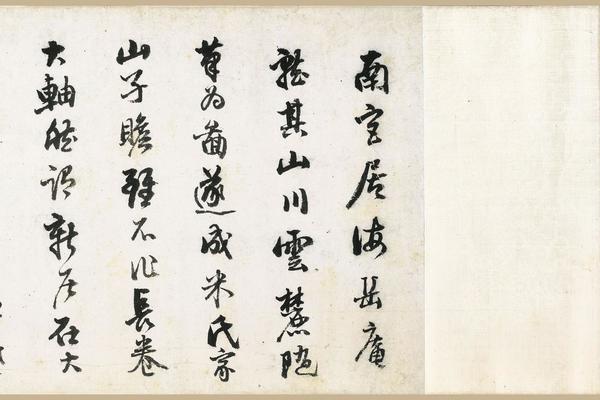 南宮居海岳庵
其山川雲麓隨
筆為圖遂成米氏家
山子瞻雖不作長卷
大軸 謂新居在大